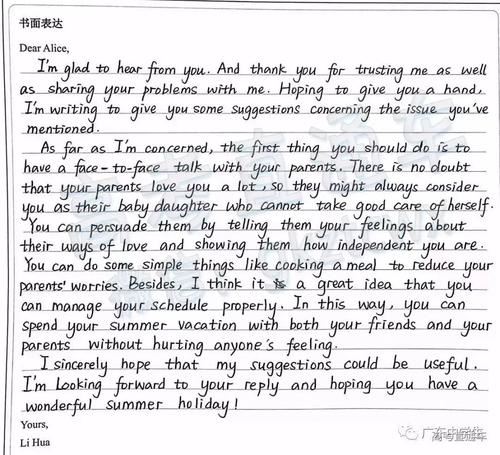 书面表达
Dear Alice,
I'm glad to hear from you. And thank you for trusting me as well
as sharing your problems with me. Hoping to give you a hand,
I'm writing to give you some suggestions concerning the issue you've
mentioned.
As far as I'm concerned, the first thing you should do is to
have a face-to-face talk with your parents. There is no doubt
that your parents love you a lot, so they might always consider
you as their baby daughter who cannot take good care of herself.
You can persuade them by telling them your feelings about
their ways of love and showing them how independent you are.
You can do some simple things like cooking a meal to reduce your
parents' worries. Besides, I think it is a great idea that you
can manage your schedule properly. In this way, you can
spend your summer vacation with both your friends and your
parents without hurting anyone's feeling.
I sincerely hope that my suggestions could be useful.
I'm Looking forward to your reply and hoping you have a
wonderful summer holiday!
Yours,
Li Hua
广东中学生